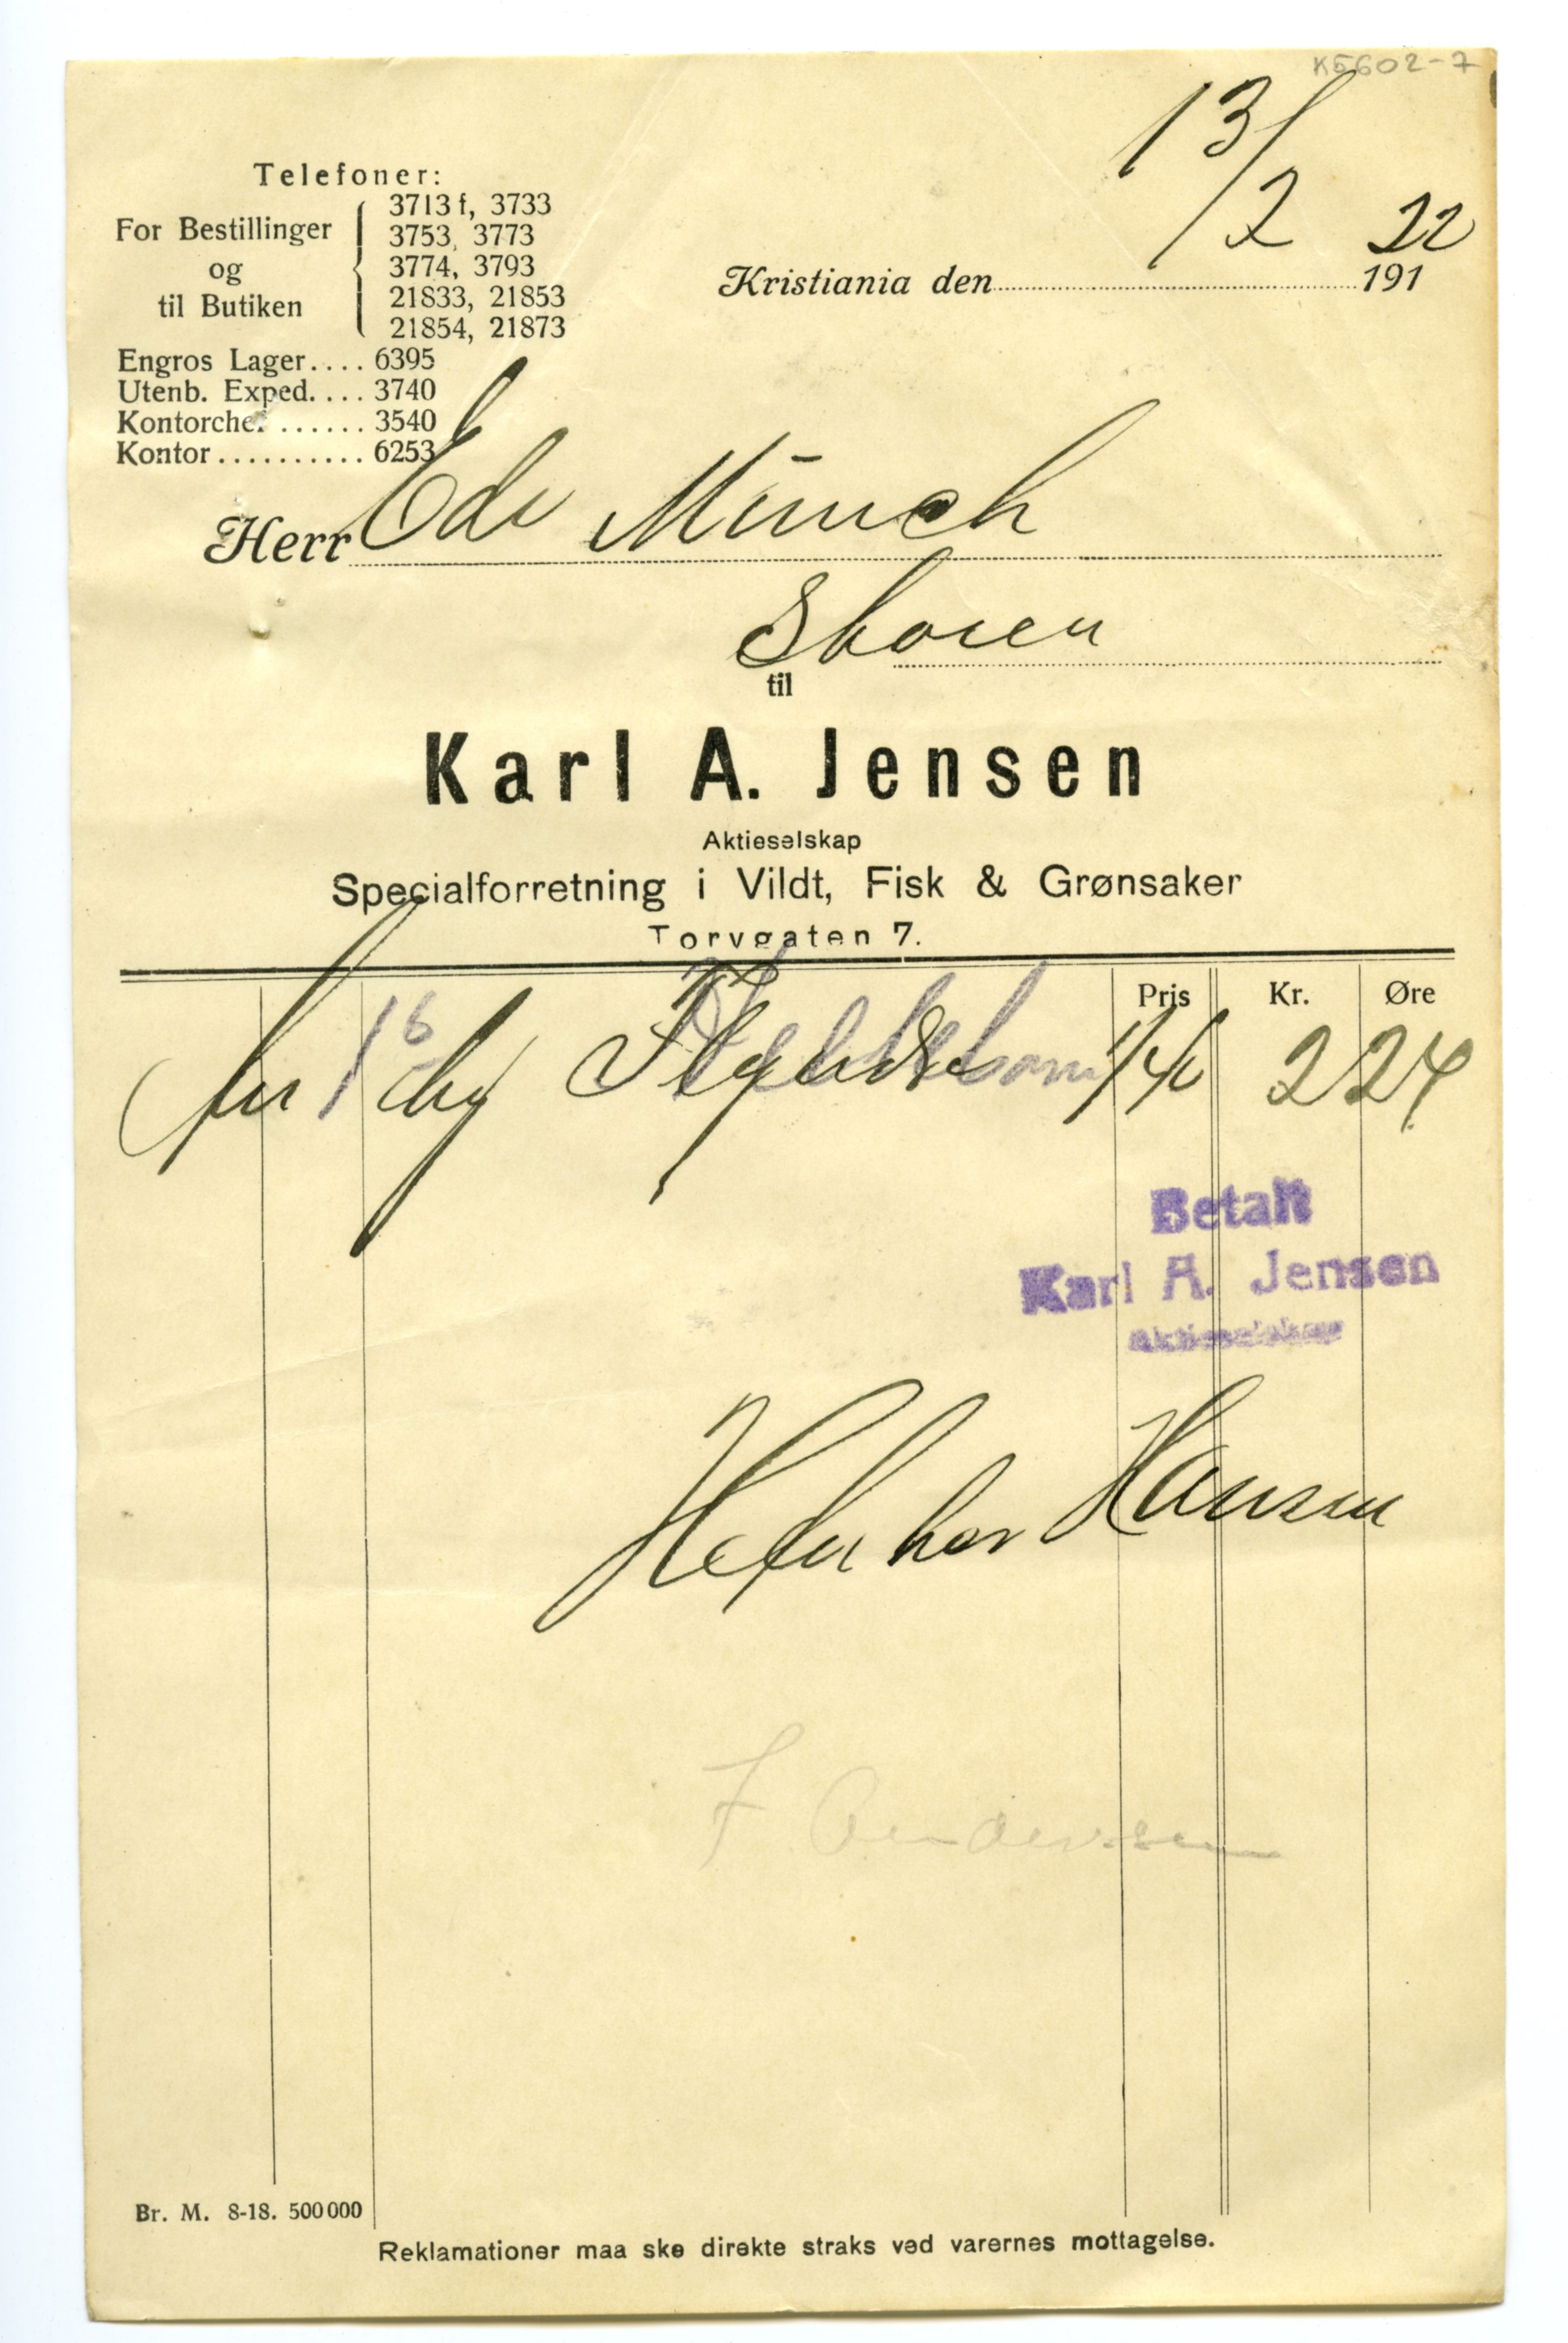 K5602-7
13/2 22
Telefoner:
For Bestillinger og til Butiken
3713 f, 3733
3753, 3773
3774, 3793
21833, 21853
21854, 21873
Kristiania den 191
Engros Lager.... 6395
Utenb. Exped.... 3740
Kontorchef ...... 3540
Kontor.......... 6253
Herr Edv Munch
Skøien
til
Karl A. Jensen
Aktieselskap
Specialforretning i Vildt, Fisk & Grønsaker
Torvgaten 7.
Pris Kr. Øre
1 6 kg 1/40 2 24
Betalt
Karl A. Jensen
Aktieselskap
Hansen
F. Andersen
Br. M. 8-18. 500000
Reklamationer maa ske direkte straks ved varernes mottagelse.